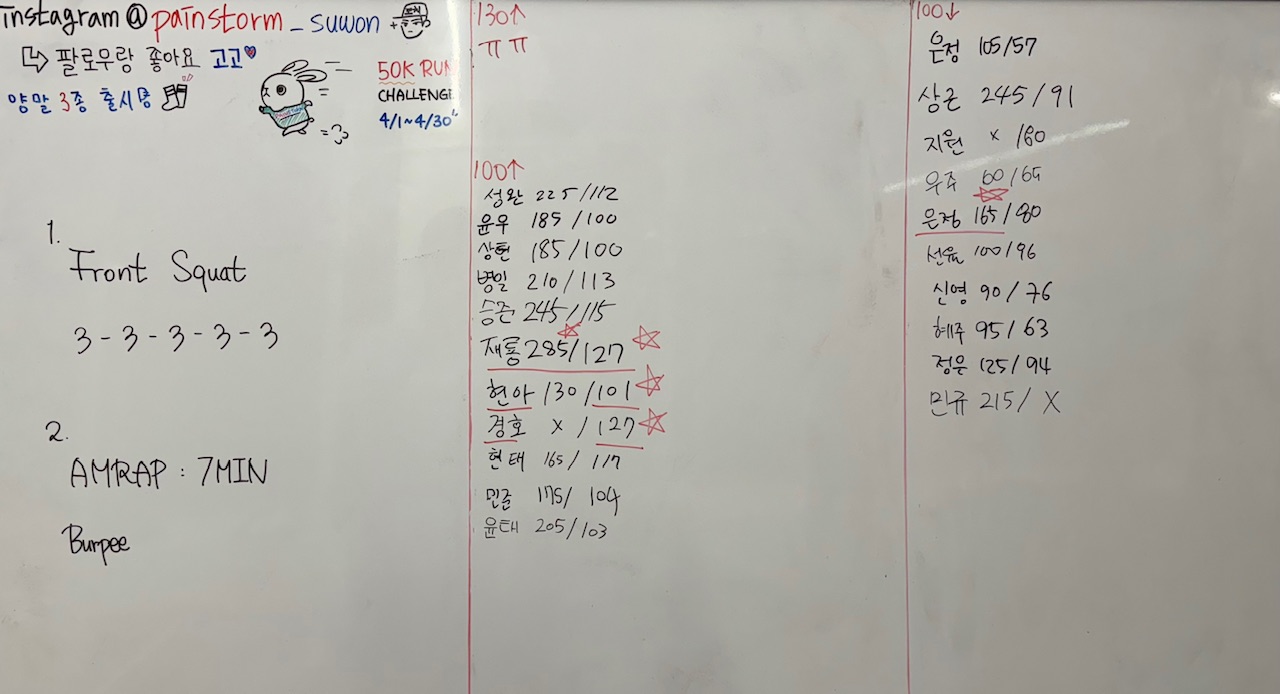 instagram@painstorm_suwon
↳ 팔로우랑 좋아요 고고♥
양말 3종 출시중
50K RUN
CHALLENGE
4/1~4/30
1.
Front Squat
3-3-3-3-3
2.
AMRAP : 7MIN
Burpee
130↑
ㅠㅠ
100↑
성완 225/112
윤우 185/100
상현 185/100
병일 210/113
승준 245/115
재룡 285/127
현아 130/101
경호 x/127
현태 165/117
민준 175/104
윤태 205/103
100↓
은정 105/57
상근 245/91
지원 x/80
우주 60/65
은정 165/80
선율 100/96
신영 90/76
혜주 95/63
정은 125/94
민규 215/X